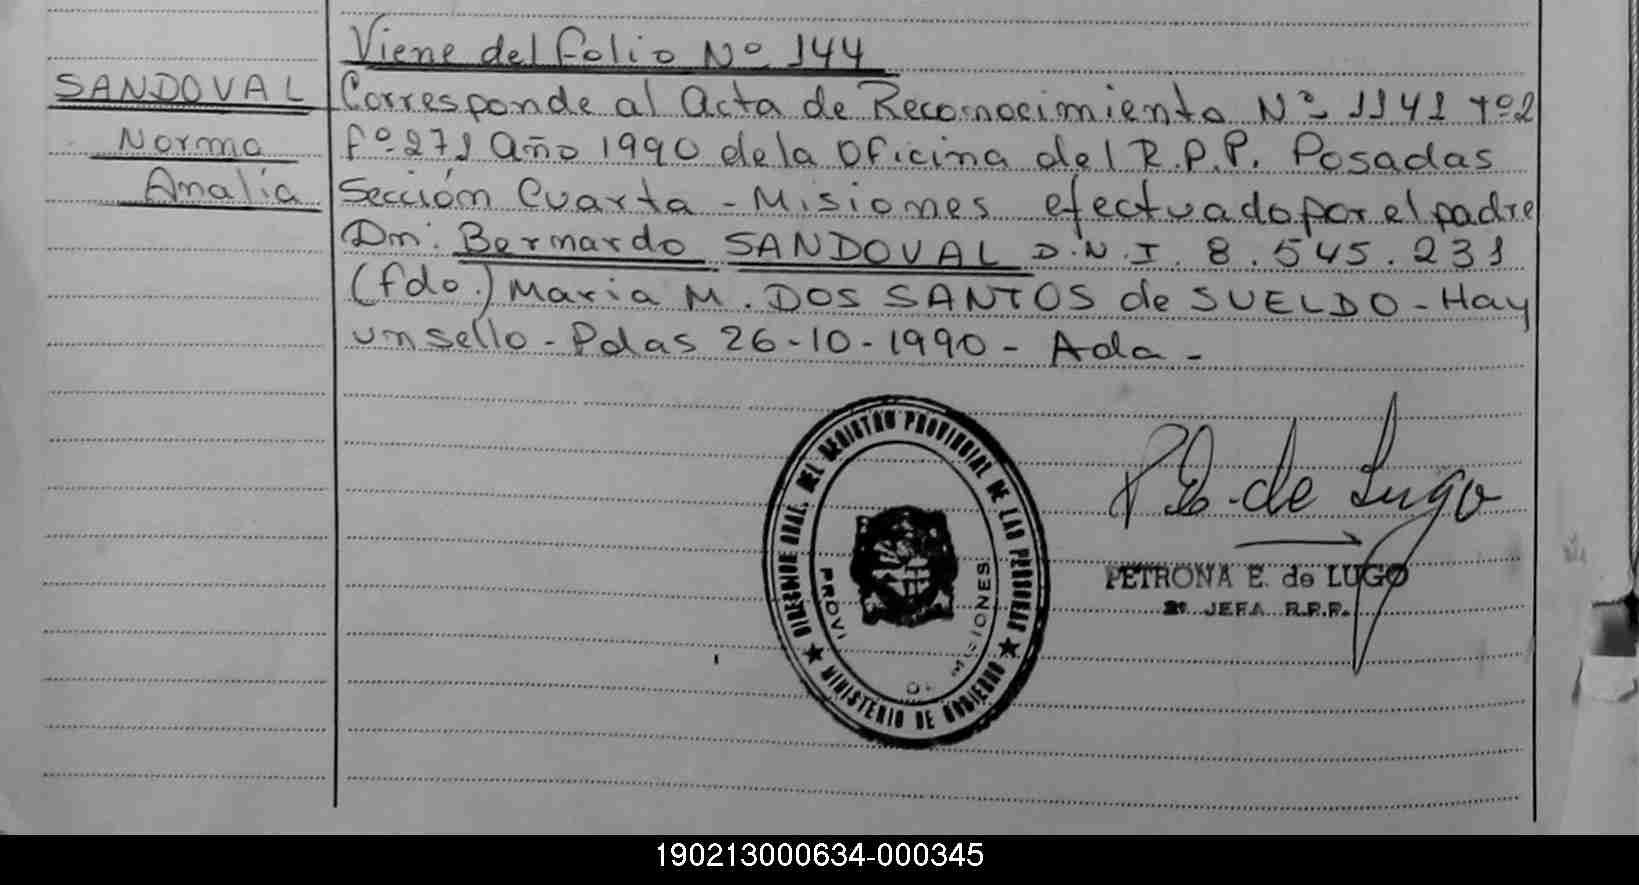 Viene del folio Nº 144
SANDOVAL
Norma
Analía
Corresponde al Acta de Reconocimiento Nº 1141 tº2
fº 271 Año 1990 de la Oficina del R.P.P. Posadas
Sección Cuarta - Misiones efectuado por el padre
Dn. Bernardo SANDOVAL D.N.I. 8.545.231
(fdo.) Maria M. DOS SANTOS de SUELDO - Hay
un sello - Pdas 26-10-1990 - Ada -
DIRECCION GRAL. DEL REGISTRO PROVINCIAL DE LAS PERSONAS
MINISTERIO DE GOBIERNO
PROVI
MISIONES
P E de Lugo
PETRONA E. de LUGO
2º JEFA R.P.P.
190213000634-000345